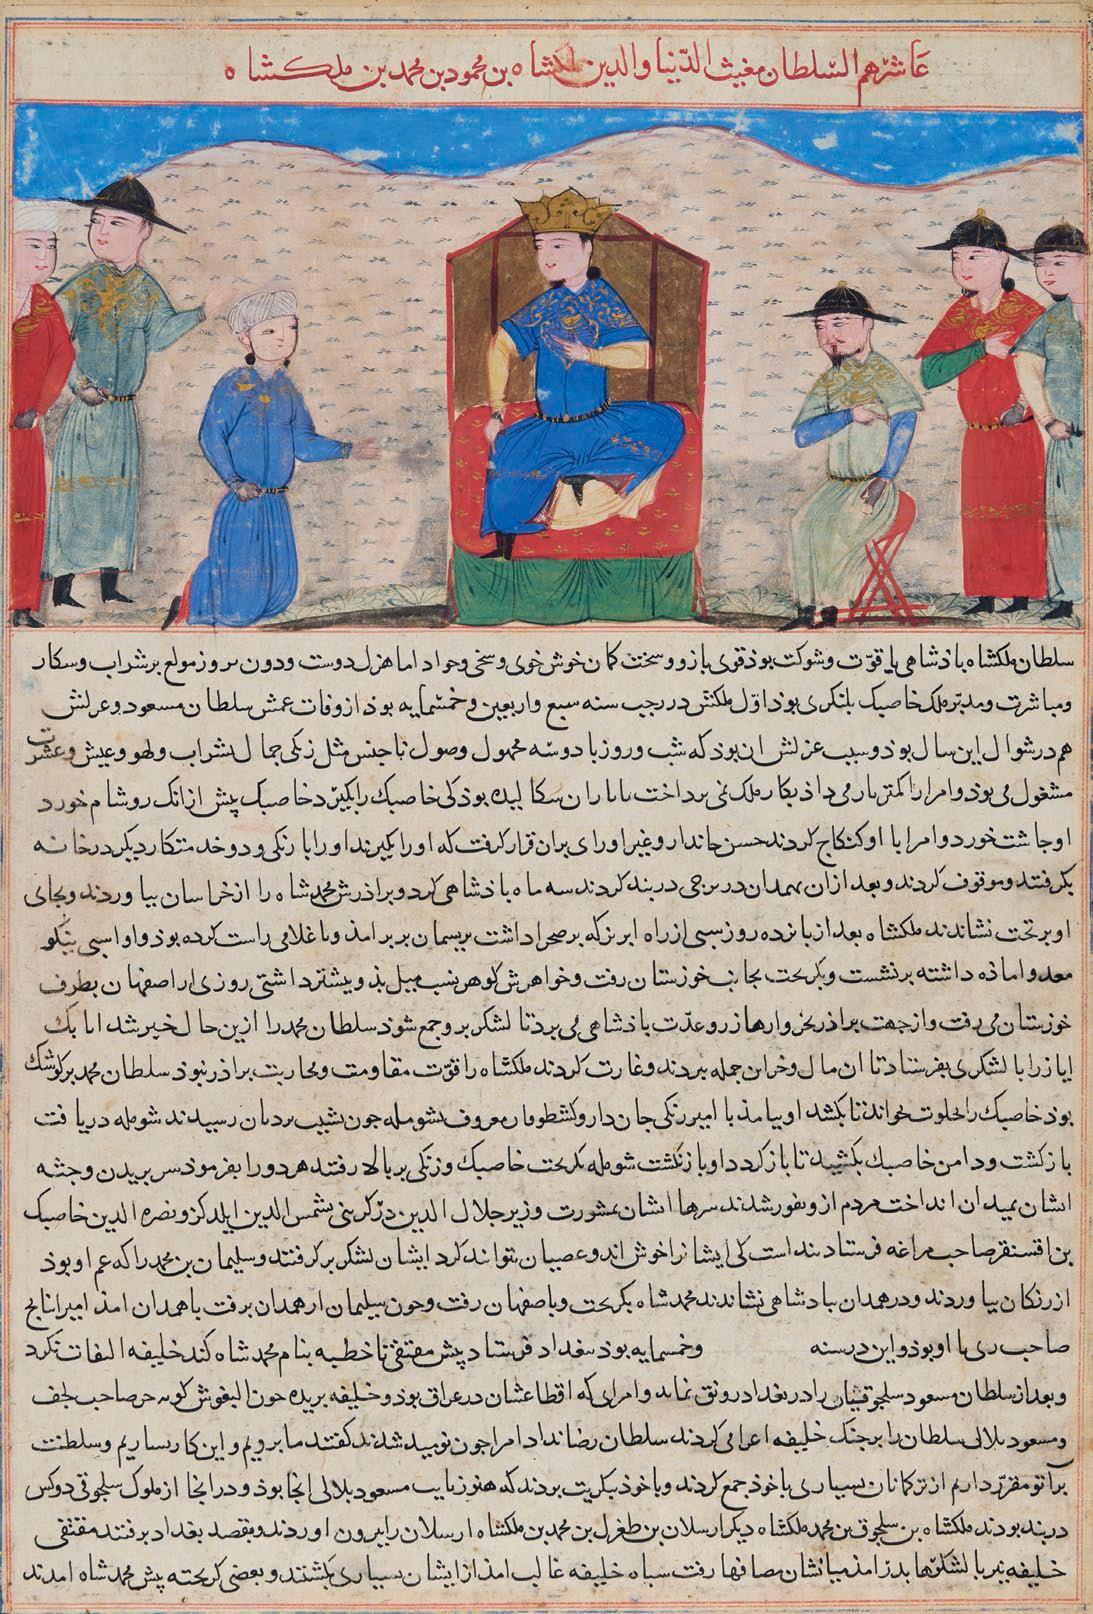 عاشرهم السلطان مغیث الدنیا والدین ملکشاه بن محمود بن محمد بن ملکشاه
سلطان ملکشاه باذشاهی با قوت و شوکت بوذ قوی بازو و سخت کمان خوش خوی و سخی و جواد اما هزل دوست و دون مولع بر شراب و سکار
و مباشرت و مدبر ملک خاصبک بلنکری بوذ اول ملکش در رجب سنه سبع و اربعین و خمسمایه بوذ از وفات عمش سلطان مسعود و عزلش
هم در شوال این سال بوذ و سبب عزلش ان بوذ که شب و روز با دو سه مجهول وصول ناجنس مثل زنکی جمال بشراب و لهو و عیش و عشرت
مشغول می بوذ و امرا را کمتر بار می داذ بکار ملک نمی برداخت با یاران سکالیده بوذ کی خاصبک را بکیرد خاصبک پیش از انک رو شام خورد
او جاشت خورد و امرا با او کنکاج کردند حسن جاندار و غیر او رای بران قرار کرفت که او را بکیرند او را با زنکی و دو خدمتکار دیکر در خانه
بکرفتند و موقوف کردند و بعد ازان بهمدان در برجی در بند کردند سه ماه باذشاهی کرد و براذرش محمد شاه را از خراسان بیاوردند و بجای
او بر تخت نشاندند ملکشاه بعد از بانزده روز شبی از راه ابریز که بر صحرا داشت بریسمان بر برامذ و با غلامی راست کرده بوذ و او اسبی نیکو
و اماذه داشته برنشست و بکریخت بجانب خوزستان رفت و خواهرش کوهر نسب میل بذو بیشتر داشتی روزی از اصفهان بطرف
خوزستان می رفت و از جهت براذر و عدت باذشاهی می برد تا لشکر برو جمع شوذ سلطان محمد را ازین حال خبر شد اتابک
ایاز را با لشکری بفرستاد تا ان مال و خزاین جمله ببردند و غارت کردند ملکشاه را قوت مقاومت و محاربت براذر نبوذ سلطان محمد بر کوشک
بوذ خاصبک را بخلوت خواند تا بکشد او بیامذ با امیر زنکی جاندار و معروف بشومله جون بشیب نردبان رسیدند شومله دریافت
بازکشت و دامن خاصبک بکشید تا باز کردد او باز نکشت شومله بکریخت خاصبک و زنکی بر بالا رفتند هر دو را بفرموذ سر بریدن و جثه
ایشان بمیدان انداخت مردم ازو نفور شدند سرها ایشان بمشورت وزیر جلال الدین درکزینی بشمس الدین ایلدکز و نصره الدین خاصبک
بن اقسنقر صاحب مراغه فرستادند است کی ایشانرا خوش اند و عصیان نتوانند کرد ایشان لشکر برکرفتند و سلیمان بن محمد را که عم او بوذ
از زنکان بیاوردند و در همدان بباذشاهی نشاندند محمد شاه بکریخت و باصفهان رفت و جون سلیمان از همدان برفت با همدان امذ امیر اینانج
صاحب ری با او بوذ و این در سنه و خمسمایه بوذ ببغداد فرستاد پیش مقتفی تا خطبه بنام محمد شاه کند خلیفه التفات نکرد
و بعد از سلطان مسعود سلجوقیان را در بغداد رونق نماند و امرای که اقطاعشان در عراق بوذ و خلیفه بریده جون البغوش کون خر صاحب لحف
و مسعود بلالی سلطان را بر جنک خلیفه اغرا می کردند سلطان رضا نداد امرا جون نومید شدند کفتند ما برویم و این کار بسازیم و سلطنت
بر اتو مقرر داریم از ترکمانان بسیاری با خوذ جمع کردند و با خوذ بتکریت بردند که هنوز نایب مسعود بلالی انجا بوذ و در انجا از ملوک سلجوقی دو کس
در بند بودند ملکشاه بن سلجوق بن محمد ملکشاه دیکر ارسلان بن طغرل بن محمد بن ملکشاه ارسلان را بیرون اوردند و بقصد بغداد برفتند مقتفی
خلیفه نیز با لشکرها بدر امذ میانشان مصافها رفت سباه خلیفه غالب امذ از ایشان بسیاری بکشتند و بعضی کریخته پیش محمد شاه امدند